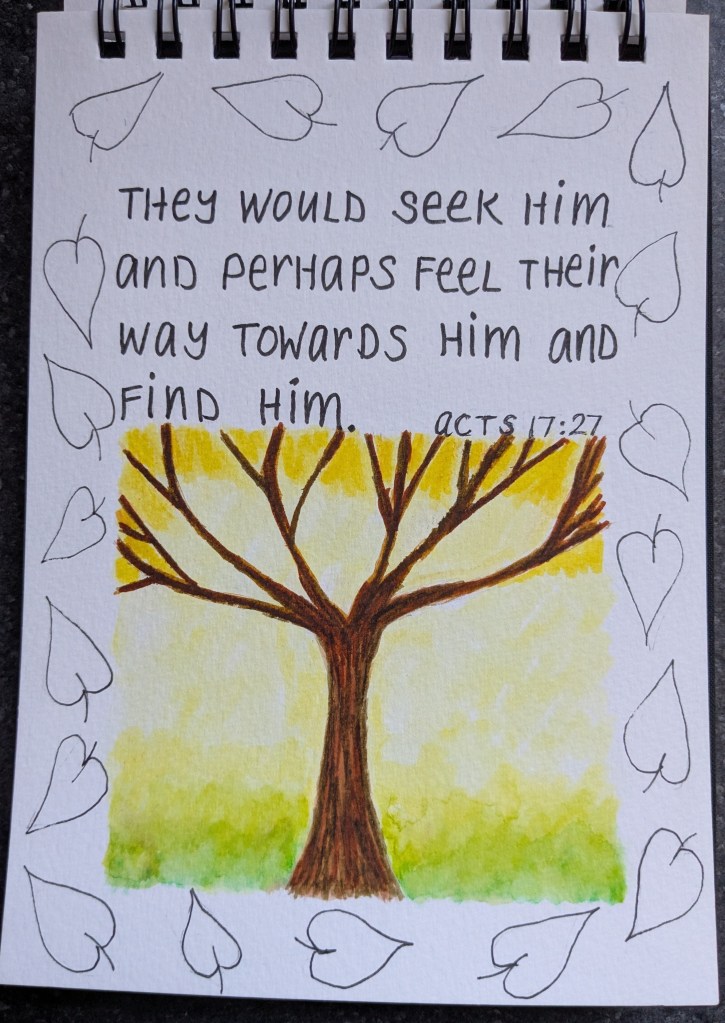 THey WOULD SeeK Him
anD PerHaPS FeeL THeir
Way TOWarDS Him anD
FinD Him.
aCTS 17:27